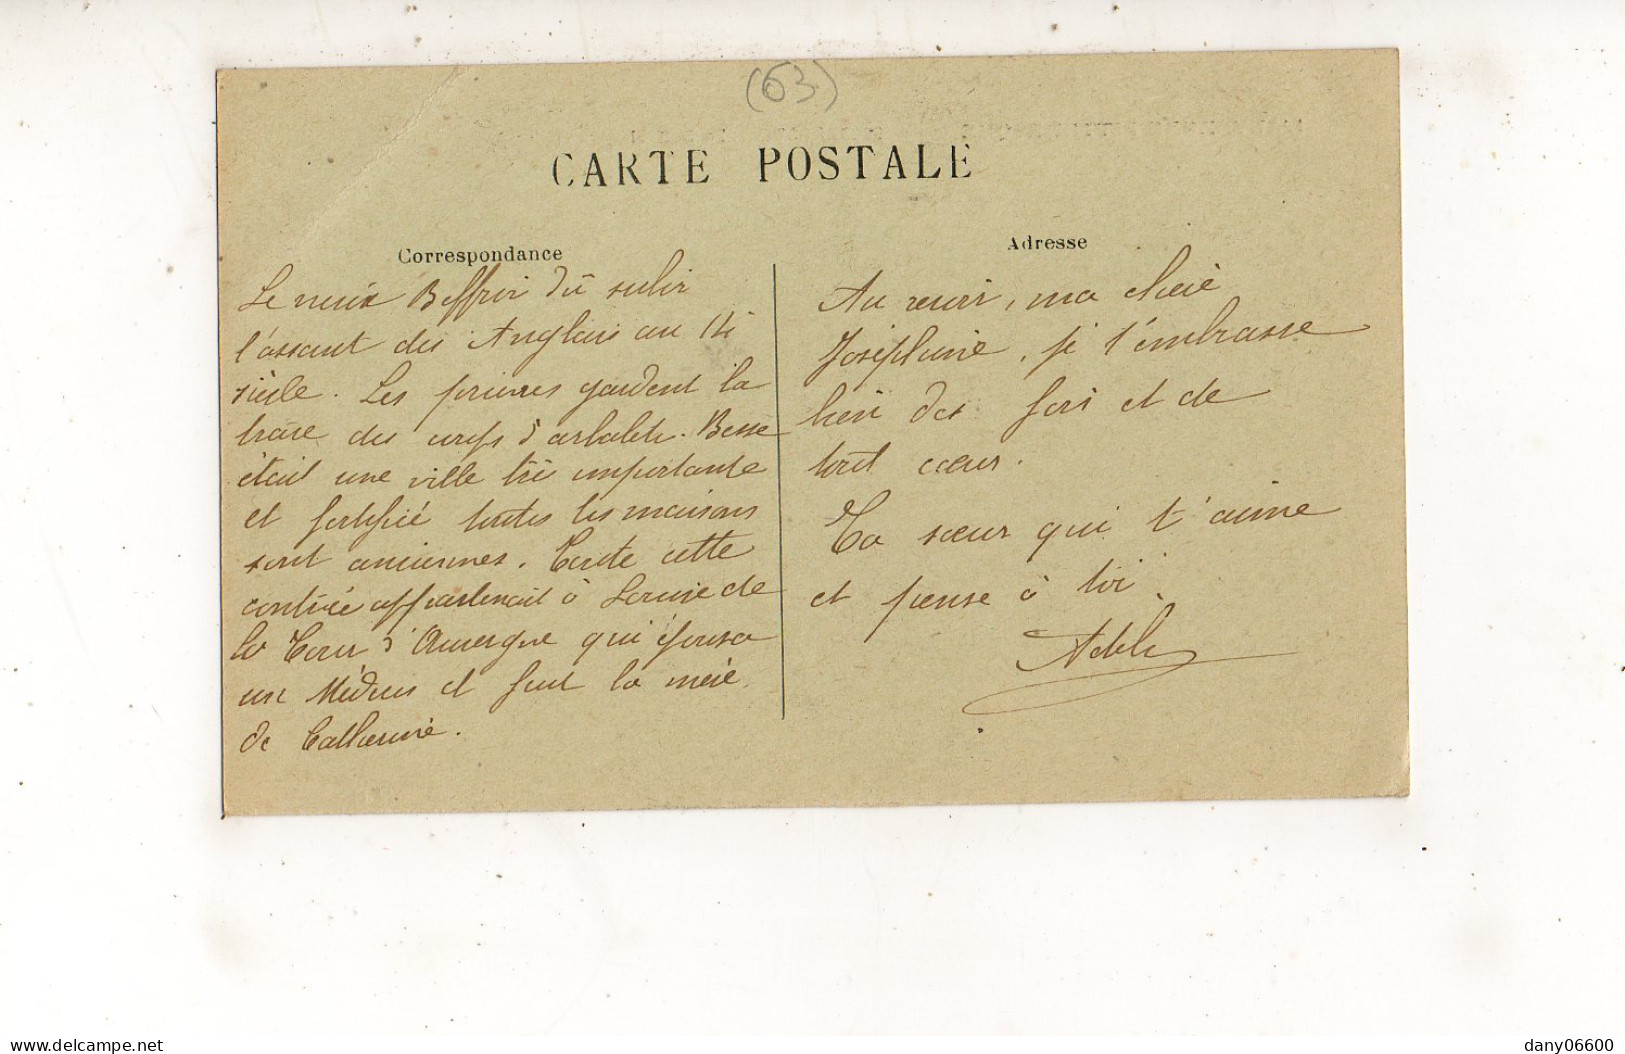 (63)
CARTE POSTALE
Correspondance
Le vieux Beffroi dû subir
l'assaut des Anglais au 14è
siècle. Les pierres gardent la
trace des coups d'arbalète. Besse
était une ville très importante
et fortifiée toutes les maisons
sont anciennes. Toute cette
contrée appartenait à Louise de
la Tour d'Auvergne qui épousa
un Médicis et fut la mère
de Catherine.
Adresse
Au revoir, ma chère
Joséphine, je t'embrasse
bien des fois et de
tout cœur.
Ta sœur qui t'aime
et pense à toi.
Adèle
delcampe.net
dany06600